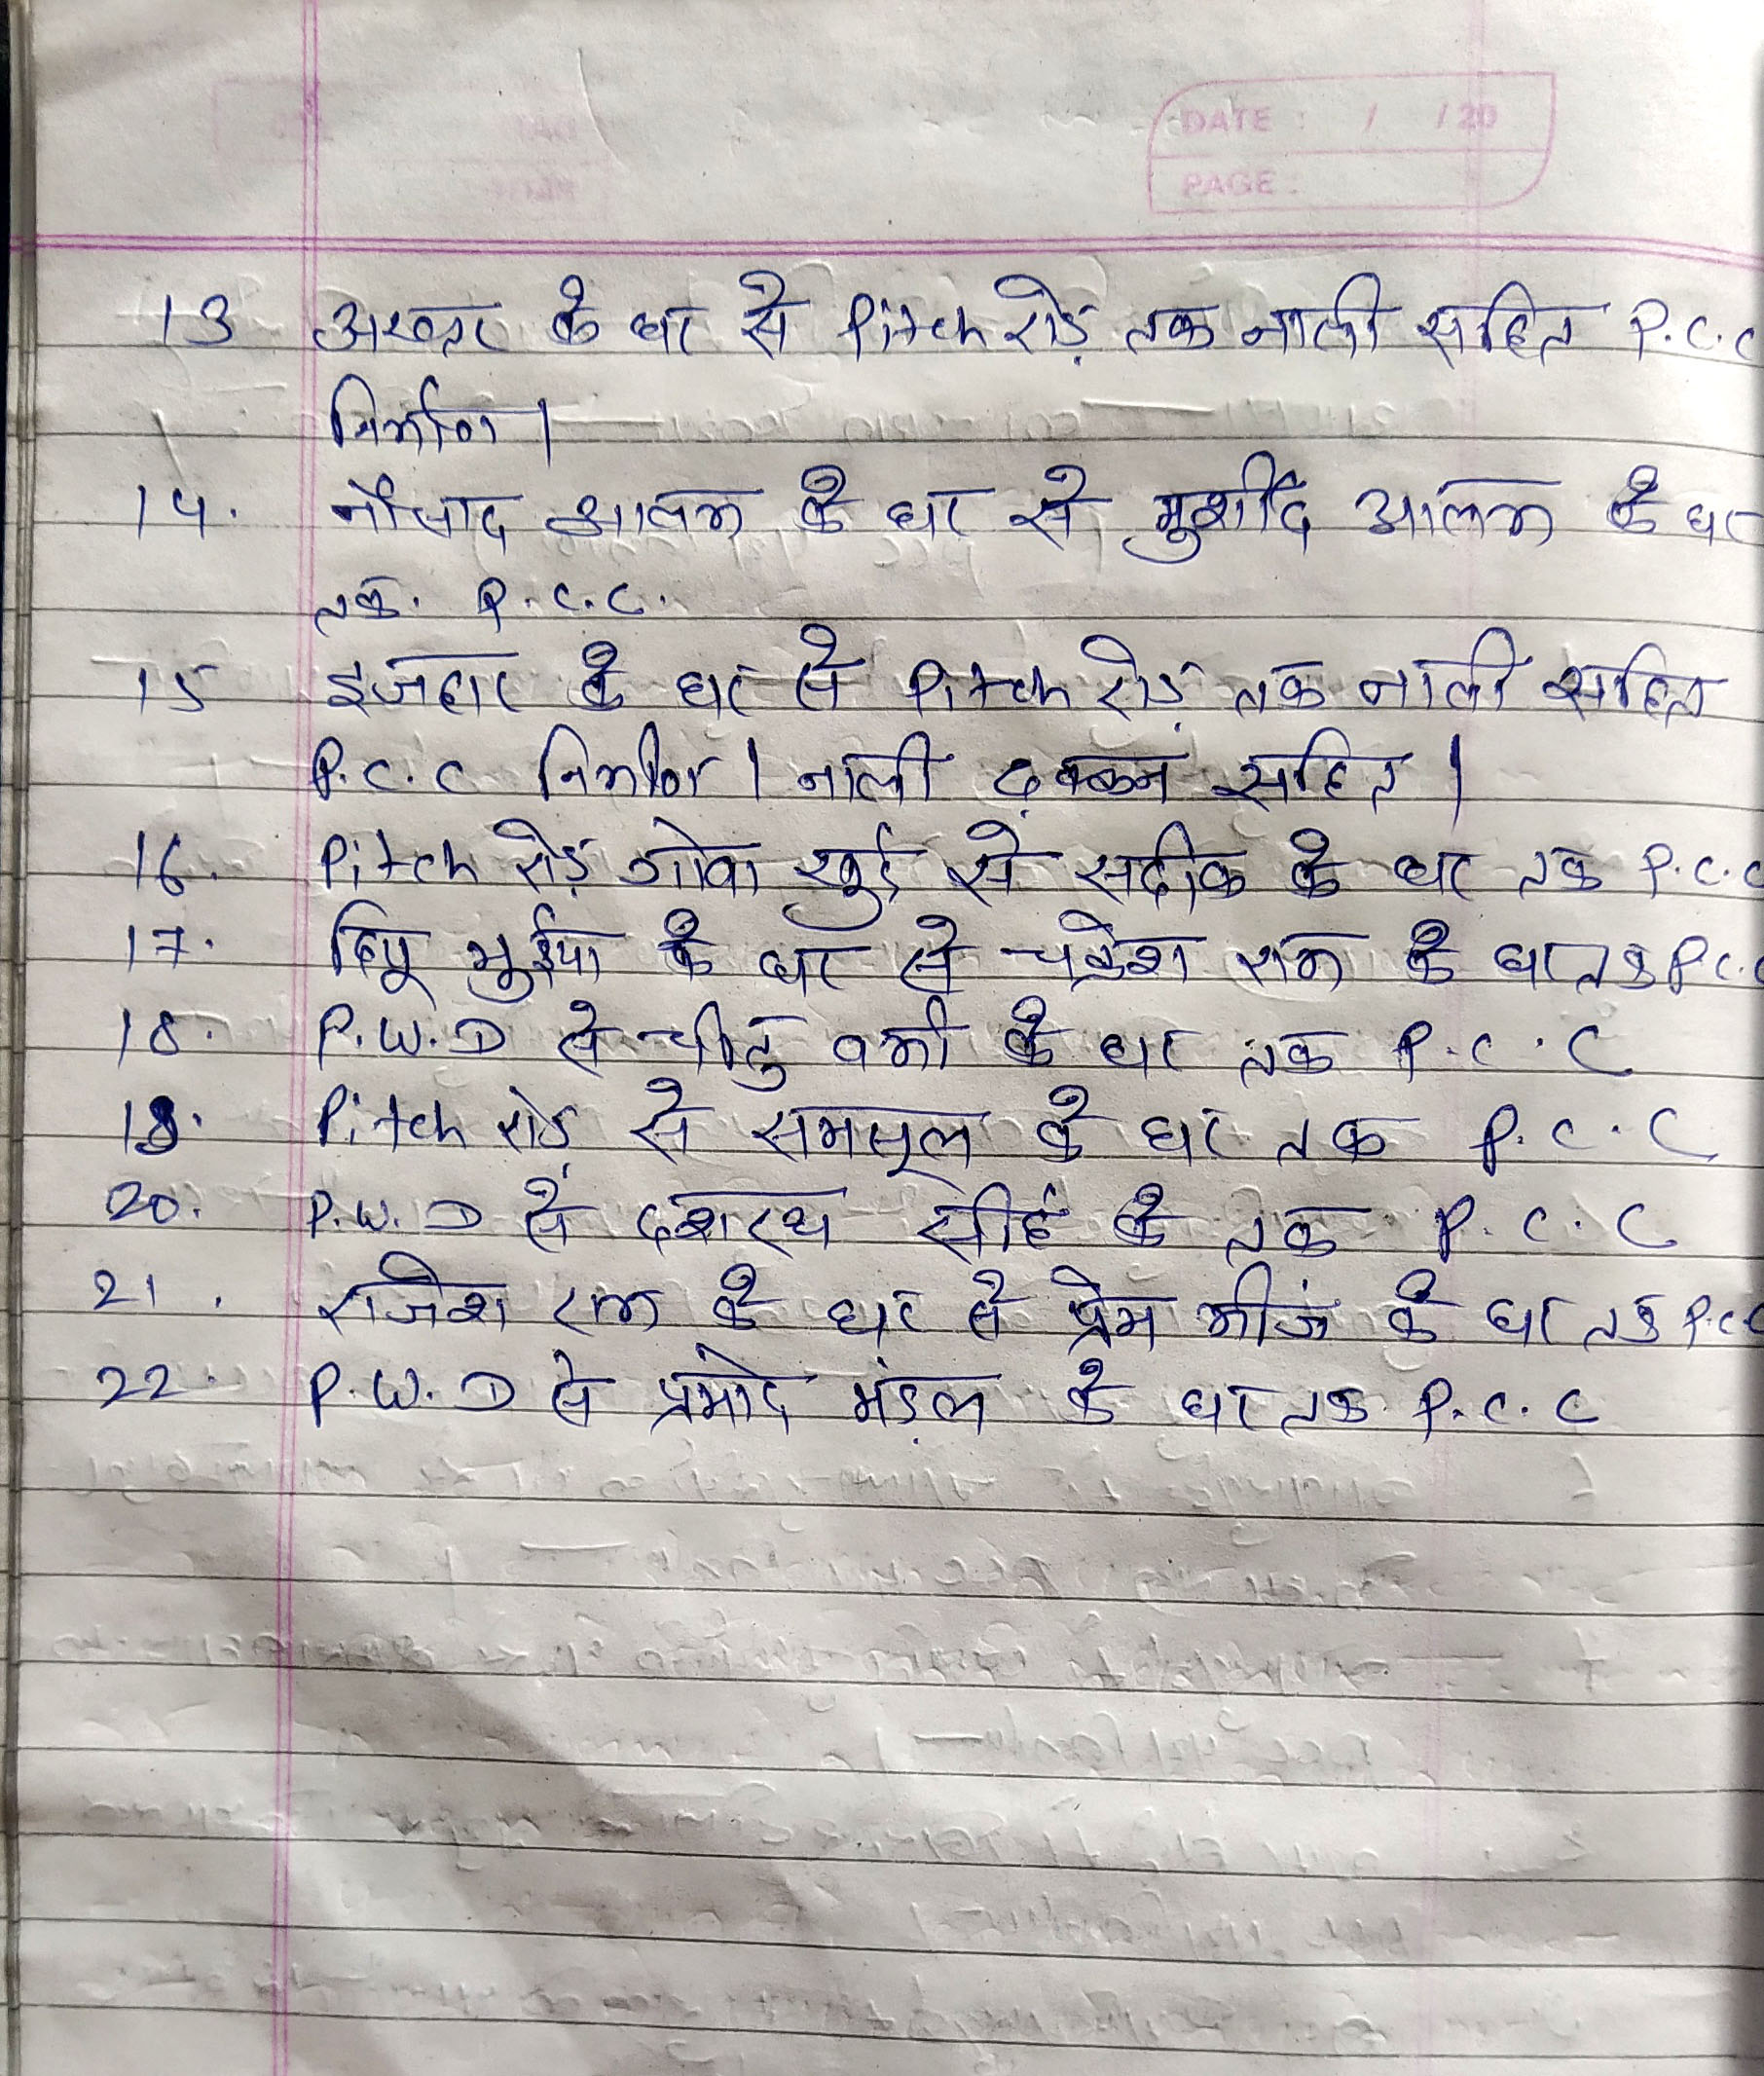 DATE : / / 20
PAGE :
13 अख्तर के घर से Pitch रोड़ तक नाली सहित P.C.C
निर्माण |
14. नौसाद आलम के घर से मुर्शीद आलम के घर
तक. P.C.C.
15 इजहार के घर से Pitch रोड़ तक नाली सहित
P.C.C निर्माण | नाली ढ़क्कन सहित |
16. Pitch रोड़ गोवा खुर्द से सदीक के घर तक P.C.C
17. दिपू भुईया के घर से चन्द्रेश राम के घर तक P.C.C
18. P.W.D से चीतु वर्मा के घर तक P.C.C
19. Pitch रोड़ से समसूल के घर तक P.C.C
20. P.W.D से दशरथ सींह के तक P.C.C
21. राजेश राम के घर से प्रेम मींज के घर तक P.C.C
22. P.W.D से प्रमोद मंडल के घर तक P.C.C